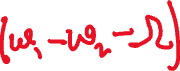 (ω₁ - ω₂ - Ω)